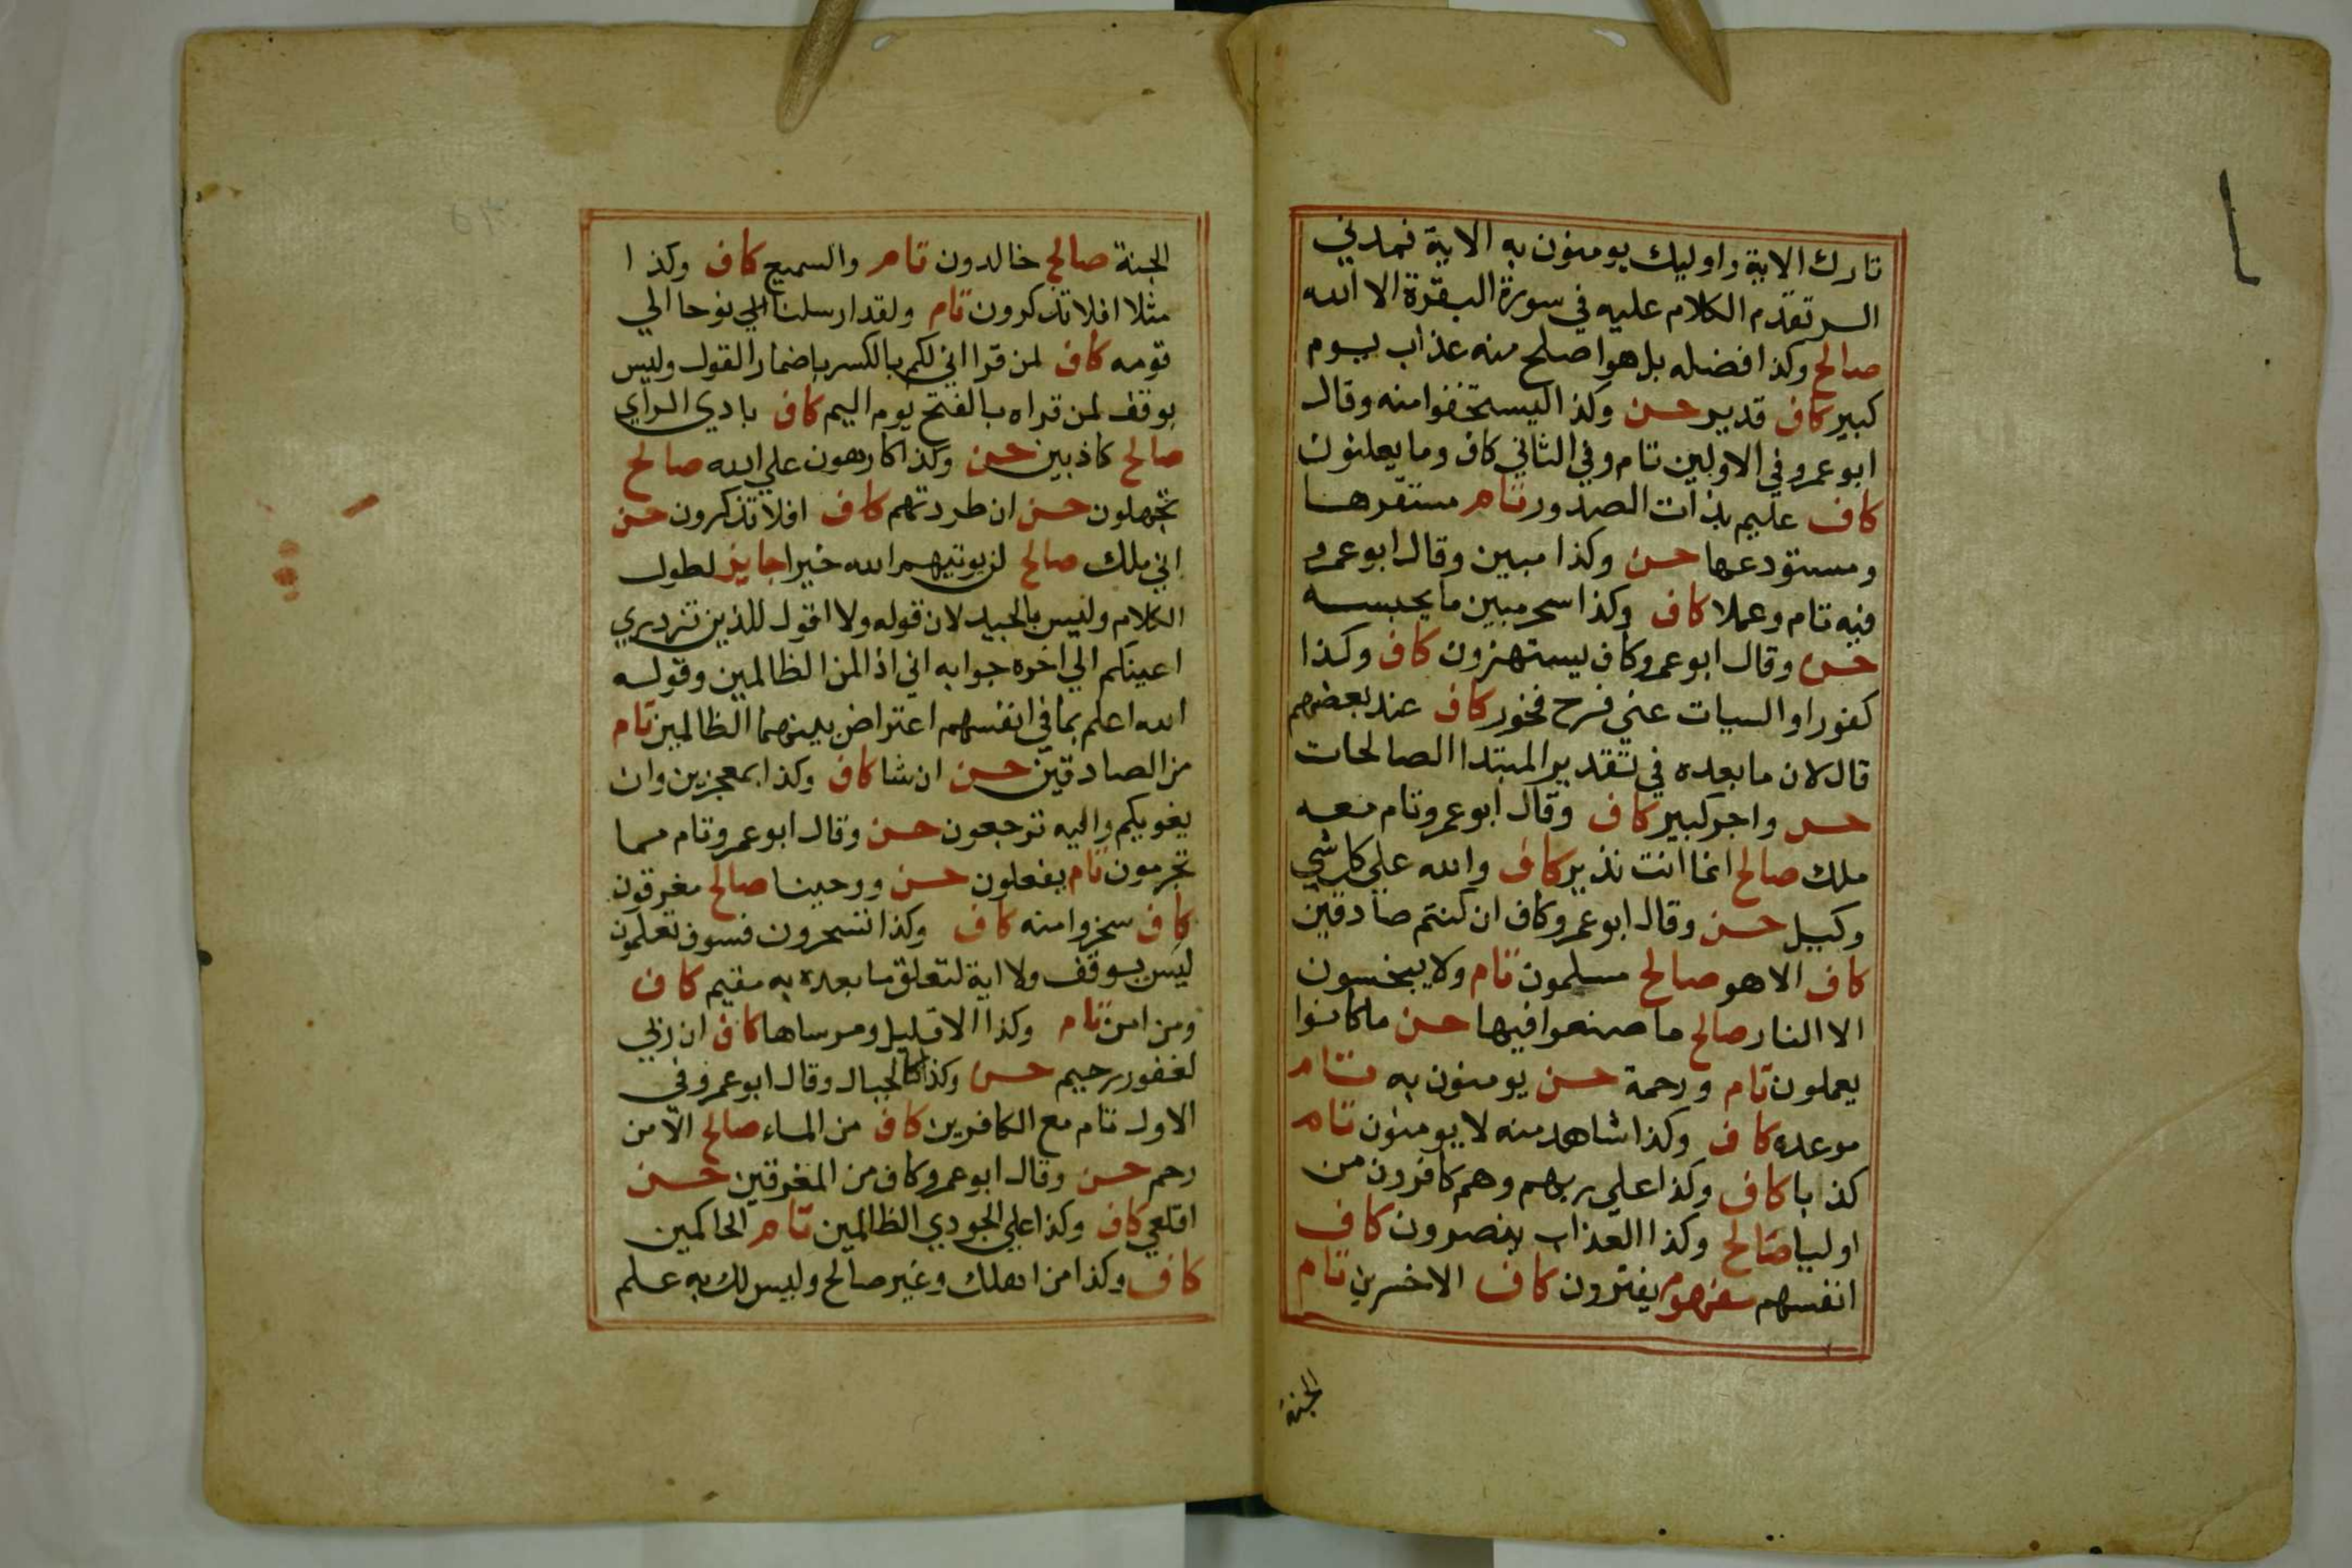 تارك الاية واوليك يومنون به الاية نمدني
الر تقدم الكلام عليه في سورة البقرة الا الله
صالح وكذا فضله بل هو اصلح منه عذاب يوم
كبير كاف قدير حسن وكذا ليستخفوا منه وقال
ابو عمرو في الاولين تام وفي الثاني كاف وما يعلنون
كاف عليم بذات الصدور تام مستقرها
ومستودعها حسن وكذا مبين وقال ابو عمرو
فيه تام وعملا كاف وكذا سحر مبين ما يحبسه
حسن وقال ابو عمرو كاف يستهزون كاف وكذا
كفور او السيات عني فرح فخور كاف عند بعضهم
قال لان ما بعده في تقدير المبتدا الصالحات
حسن واجر كبير كاف وقال ابو عمرو تام معه
ملك صالح انما انت نذير كاف والله علي كل شي
وكيل حسن وقال ابو عمرو كاف ان كنتم صادقين
كاف الا هو صالح مسلمون تام ولا يبخسون
الا النار صالح ما صنعوا فيها حسن ما كانوا
يعملون تام ورحمة حسن يومنون به تام
موعده كاف وكذا شاهد منه لا يومنون تام
كذبا كاف وكذا علي ربهم وهم كافرون من
اوليا صالح وكذا العذاب ينصرون كاف
انفسهم مفهوم يفترون كاف الاخسرين تام
الجنة
الجنة صالح خالدون تام والسميع كاف وكذا
مثلا افلا تذكرون تام ولقد ارسلنا الي نوحا الي
قومه كاف لمن قرا اني لكم بالكسر باضمار القول وليس
بوقف لمن قراه بالفتح يوم اليم كاف بادي الراي
صالح كاذبين حسن وكذا كارهون علي الله صالح
تجهلون حسن ان طردتهم كاف افلا تذكرون حسن
اني ملك صالح لن يوتيهم الله خيرا جايز لطول
الكلام وليس بالجيد لان قوله ولا اقول للذين تزدري
اعينكم الي اخره جوابه اني اذا لمن الظالمين وقوله
الله اعلم بما في انفسهم اعتراض بينهما الظالمين تام
من الصادقين حسن ان شا كاف وكذا بمعجزين وان
يغويكم واليه ترجعون حسن وقال ابو عمرو تام مما
تجرمون تام يفعلون حسن ووحينا صالح مغرقون
كاف سخروا منه كاف وكذا تسخرون فسوف تعلمون
ليس بوقف ولا اية لتعلق ما بعده به مقيم كاف
ومن امن تام وكذا الا قليل ومرساها كاف ان ربي
لغفور رحيم حسن وكذا كالجبال وقال ابو عمرو في
الاول تام مع الكافرين كاف من الماء صالح الا من
رحم حسن وقال ابو عمرو كاف من المغرقين حسن
اقلعي كاف وكذا علي الجودي الظالمين تام الحاكمين
كاف وكذا من اهلك وغير صالح وليس لك به علم